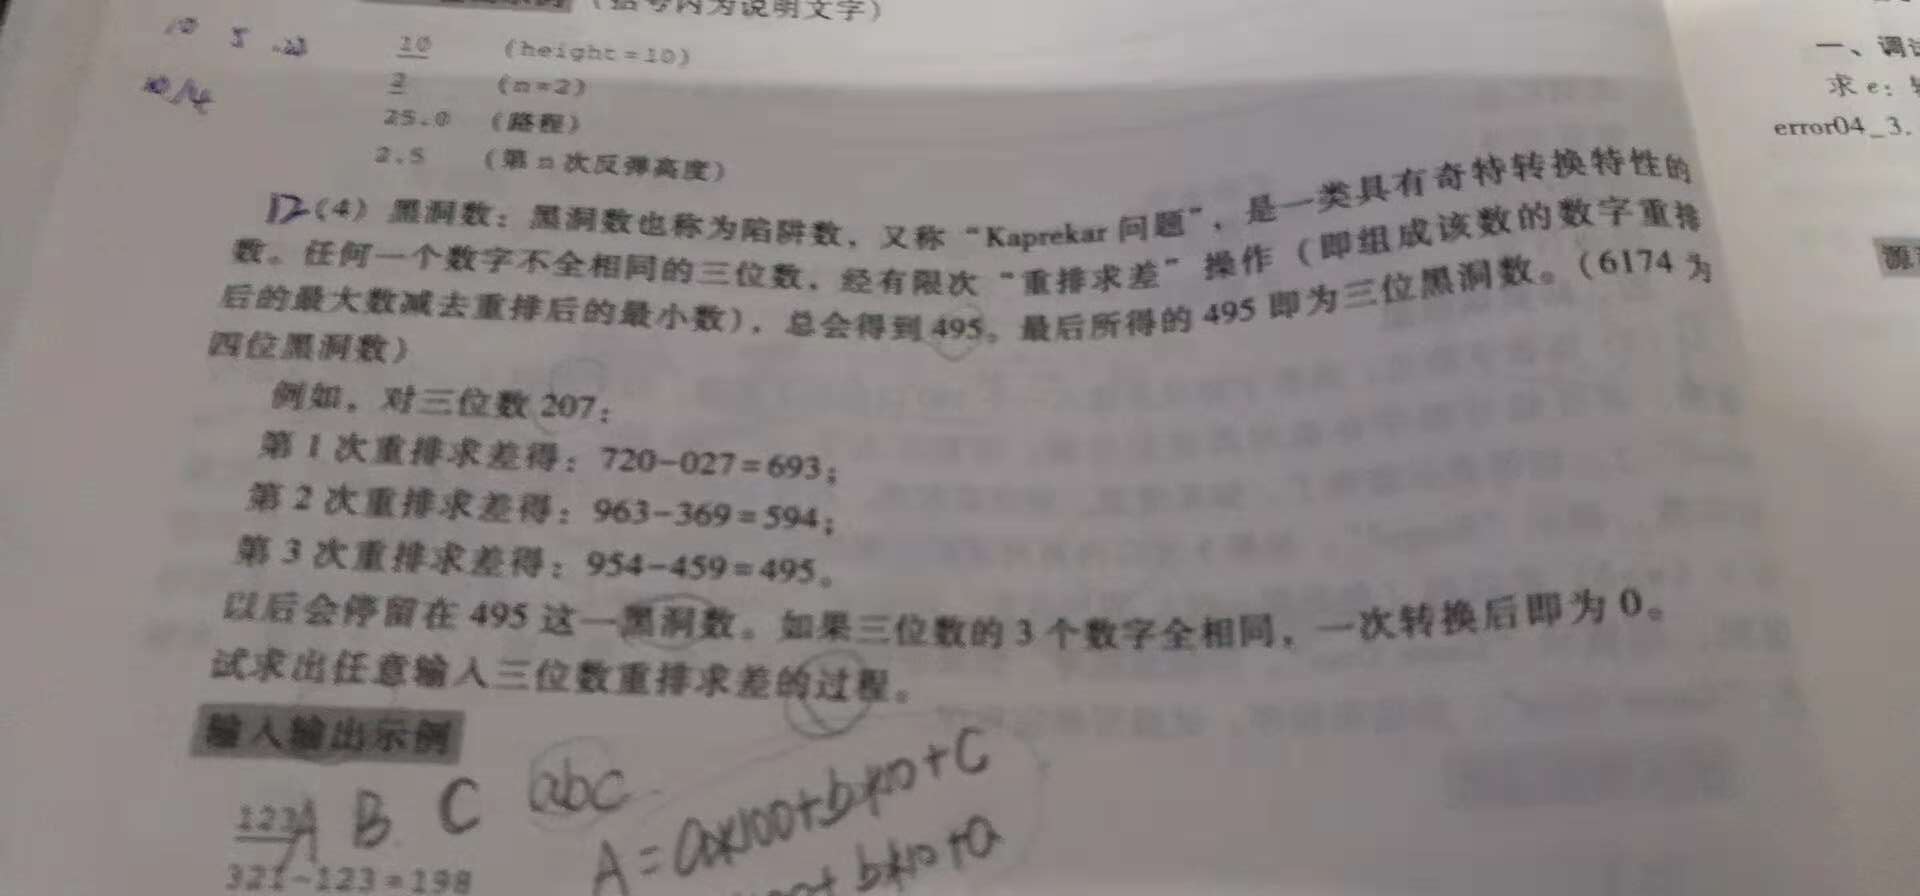 (括号内为说明文字)
10 5
10 (height=10)
2 (n=2)
25.0 (路程)
2.5 (第n次反弹高度)
(4) 黑洞数：黑洞数也称为陷阱数，又称“Kaprekar问题”，是一类具有奇特转换特性的
数。任何一个数字不全相同的三位数，经有限次“重排求差”操作（即组成该数的数字重排
后的最大数减去重排后的最小数），总会得到495。最后所得的495即为三位黑洞数。（6174为
四位黑洞数）
例如，对三位数207：
第1次重排求差得：720-027=693；
第2次重排求差得：963-369=594；
第3次重排求差得：954-459=495。
以后会停留在495这一黑洞数。如果三位数的3个数字全相同，一次转换后即为0。
试求出任意输入三位数重排求差的过程。
输入输出示例
123 A B C abc
A=a×100+b×10+C
321-123=198
b×10+a
一、调
求e：
error04_3.
源